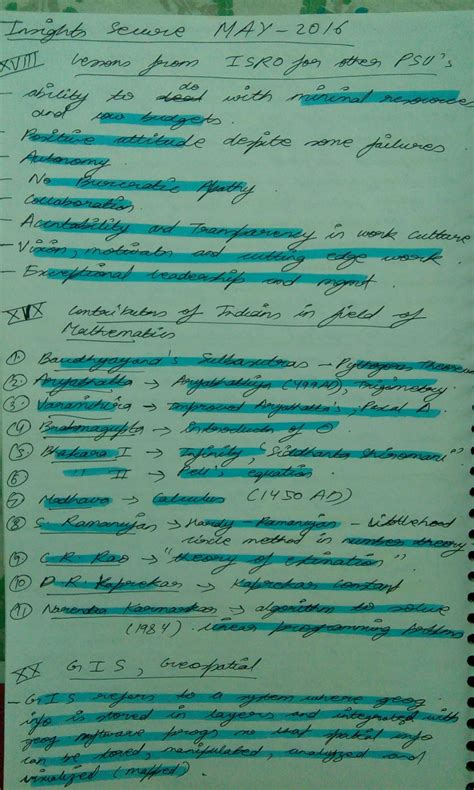 Insights Secure MAY-2016
XVIII Lessons from ISRO for other PSU's
- ability to do with minimal resource
and low budgets.
- Positive attitude despite some failures
- Autonomy
- No Burcratic Apathy
- Collaboration
- Accntability and Transparency in work culture
- Vision, motivats and cutting edge work
- Exceptional leadership and mgmt.
XIX Contributors of Indians in field of
Mathematics
① Baudhyayana's Sulbasutras - Pythagoras Theorem
② Aryabhatta → Aryabhatiya (499AD), Trigimetry
③ Varamihira → Improved Aryabhatta's, Pascal Δ.
④ Brahmagupta → Introductn of 0
⑤ Bhaskara I → Infinity, "Siddhanta Shiromani"
⑥ " II → Pell's equation
⑦ Madhava → Calculus (1450 AD)
⑧ S. Ramanujan → Hardy - Ramanujan - Littlehood
circle method in number theory
⑨ C R Rao → "theory of estimation"
⑩ D. R. Kaprekar → Kaprekar constant
⑪ Narendra Karmarkar → algorithm to solve
(1984) linear programming problems
XX GIS, Geospatial
- GIS refers to a system where geog.
info is stored in layers and integrated with
geog software progs so that spatial info
can be stored, manipulated, analyzed and
visualized (mapped)